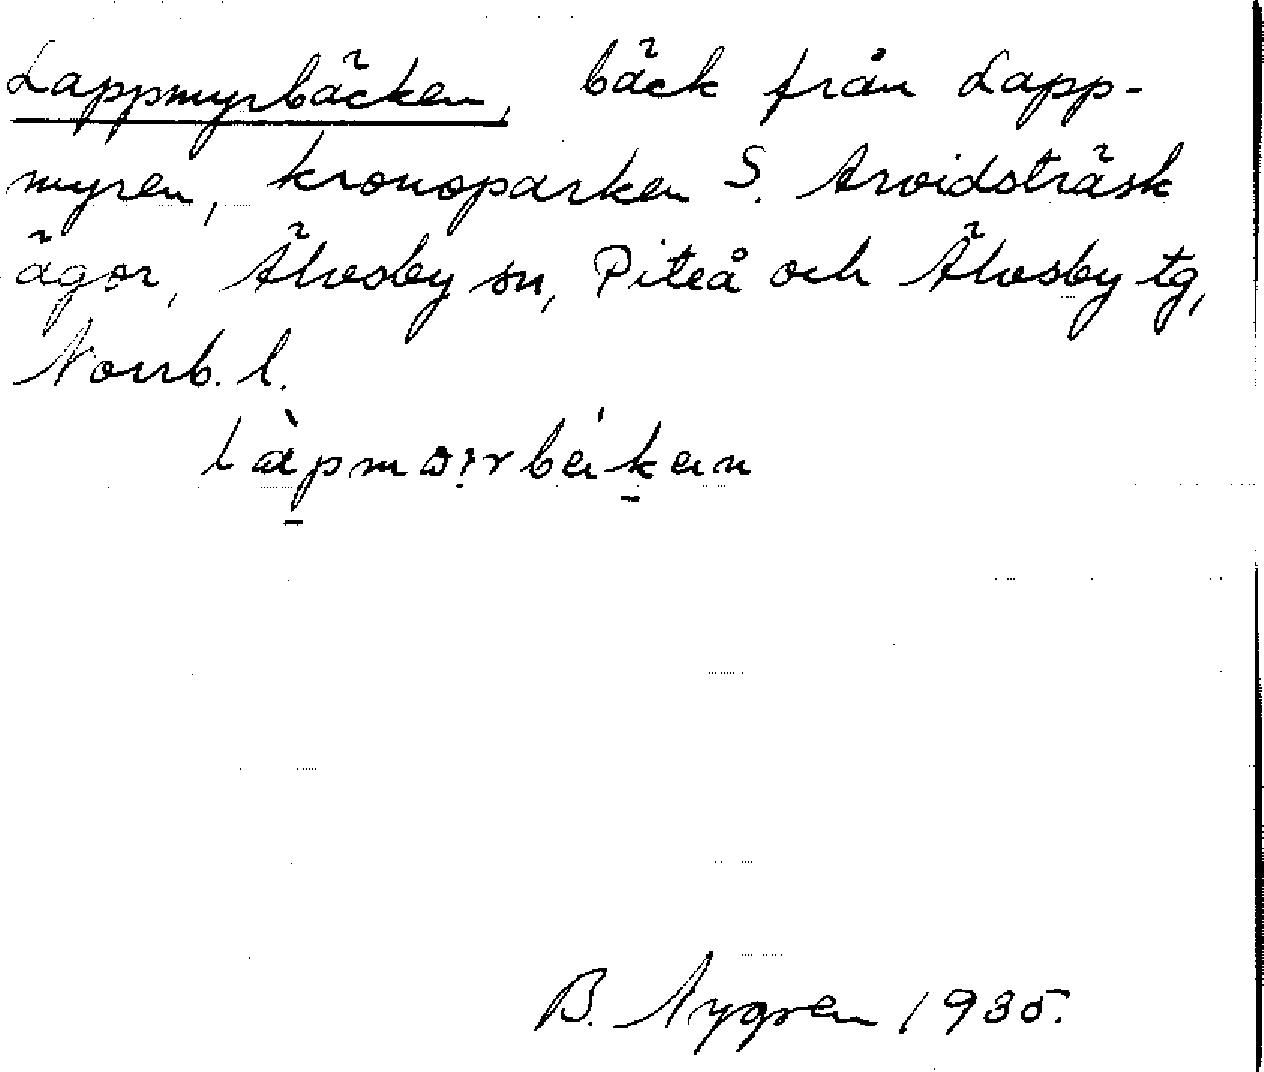 Lappmyrbäcken, bäck från Lapp-
myren, kronoparken S. Arvidsträsk
ägor, Älvsby sn, Piteå och Älvsby tg,
Norrb. l.
B. Nygren 1935.